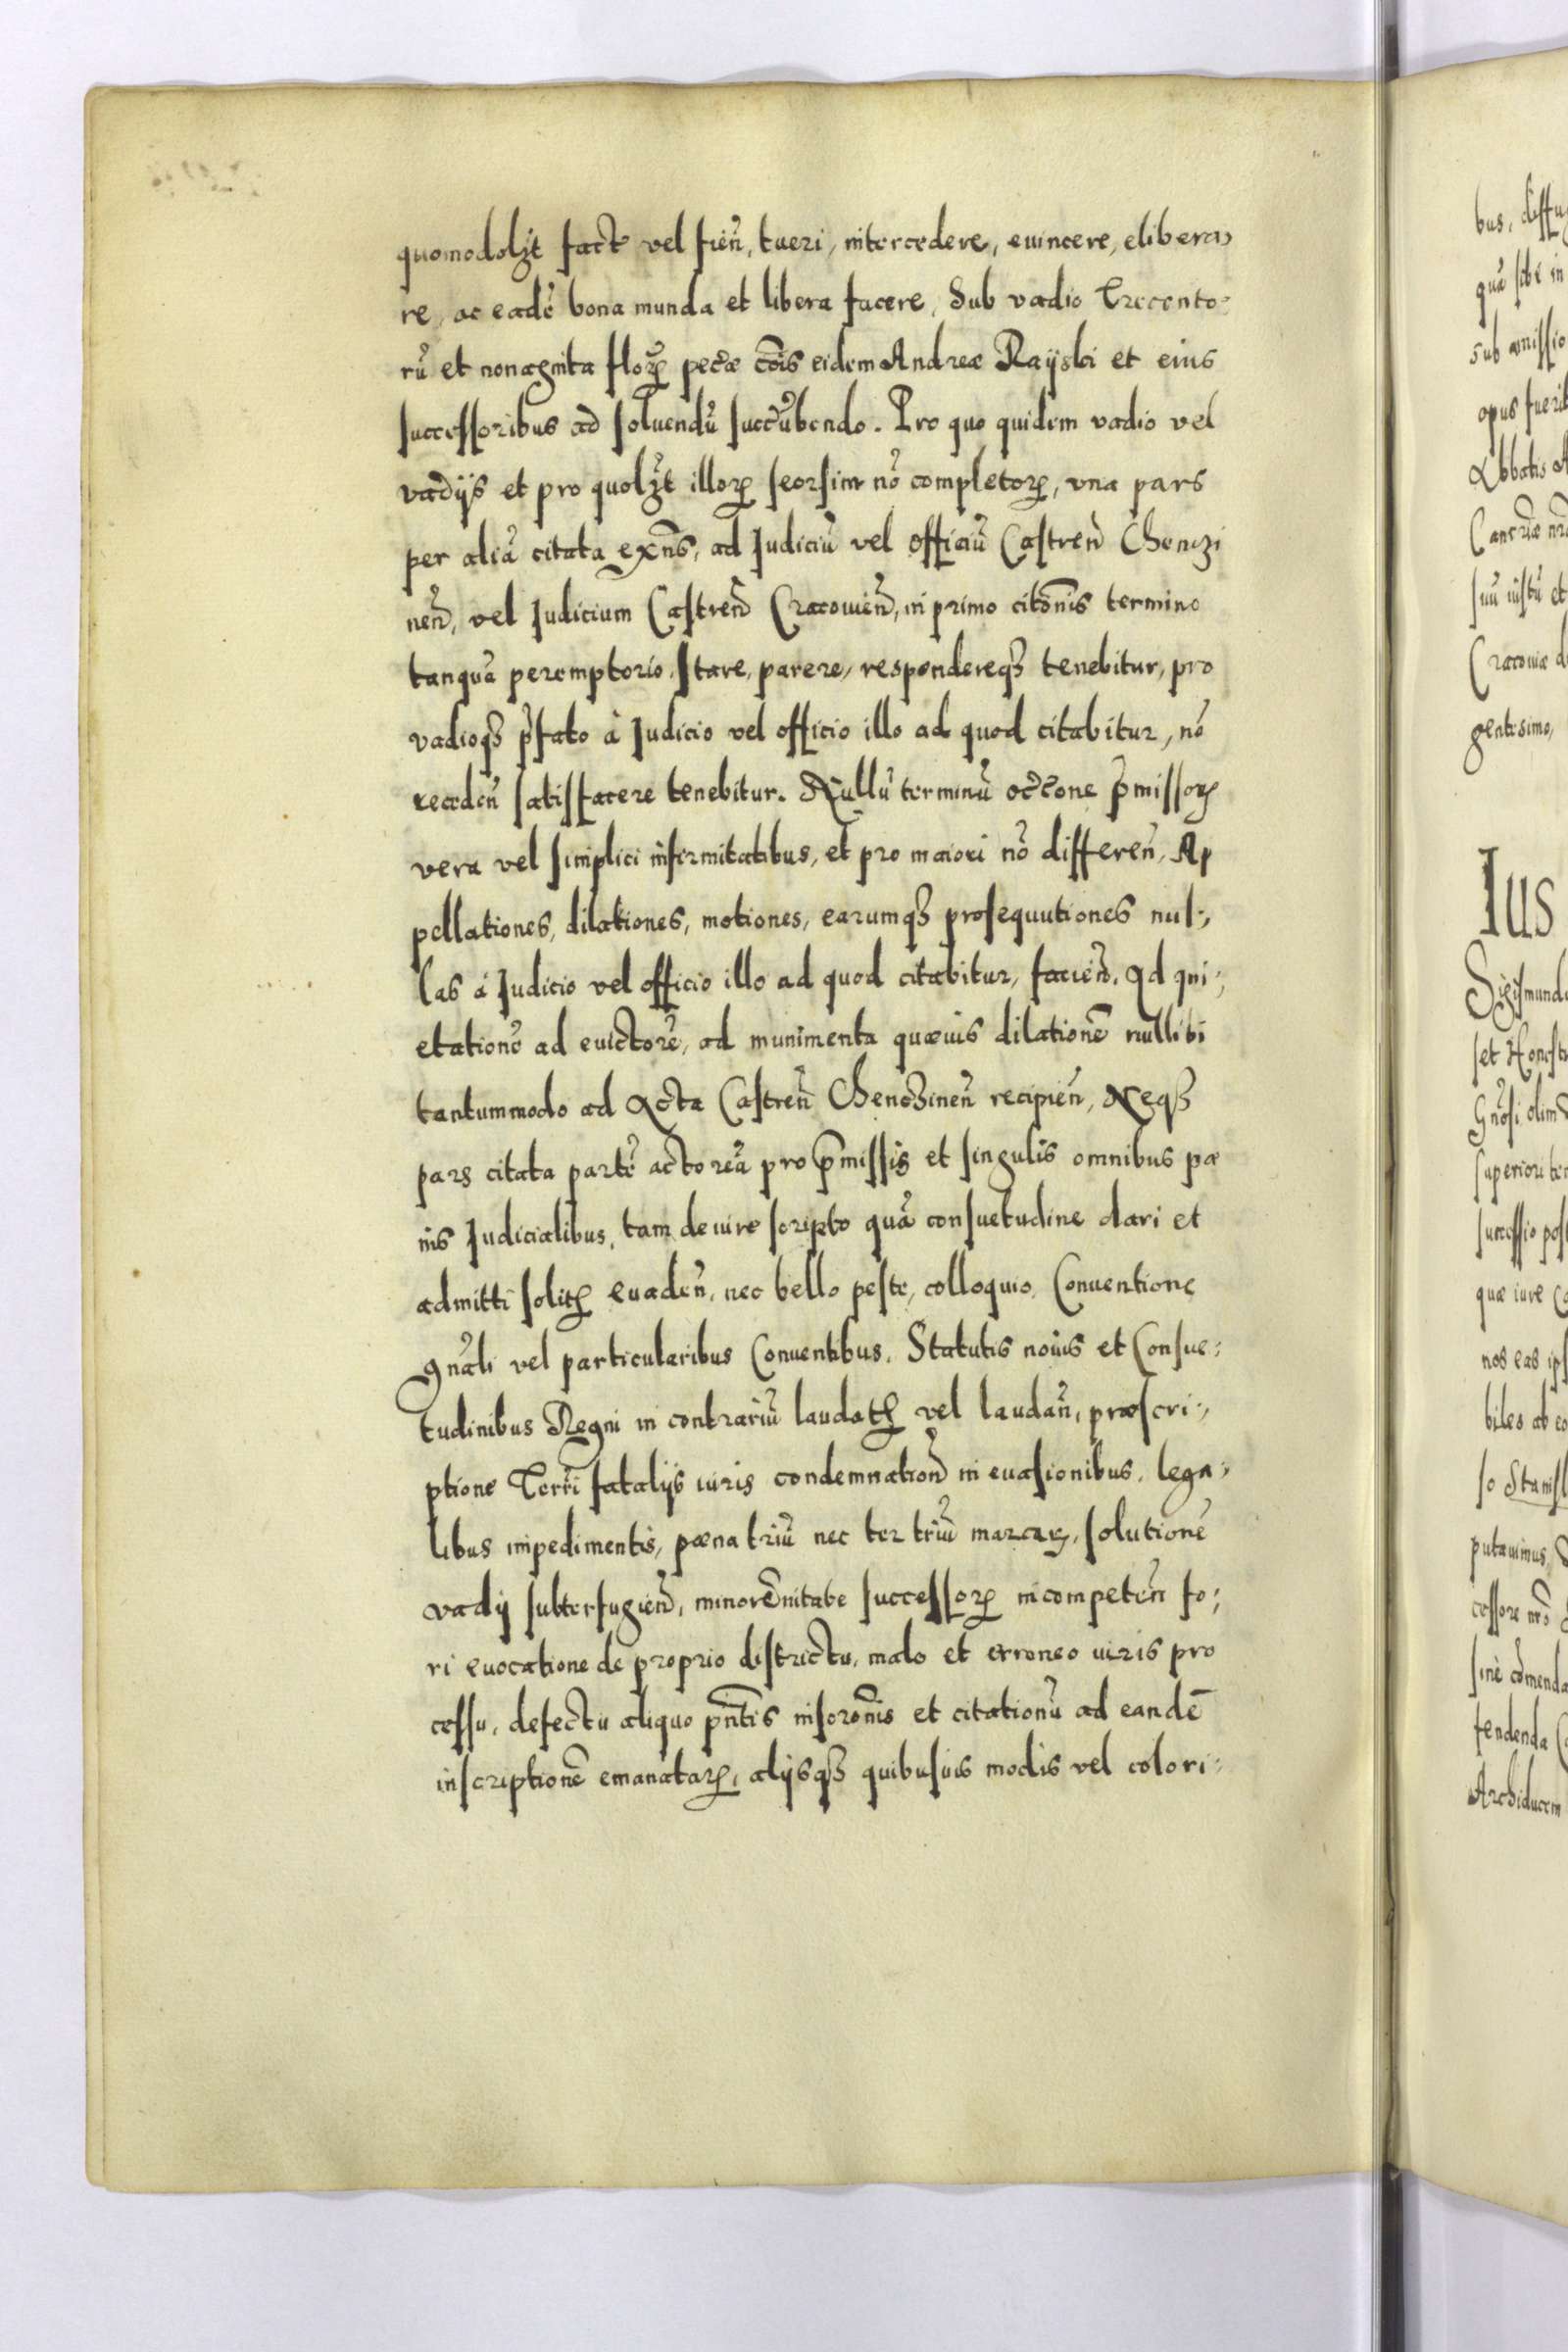 quomodolzt fact vel fień, tueri, intercedere, euincere, elibera,
re, ac eadē bona munda et libera facere, Sub vadio Trecento-
rū et nonaginta floꝝ pecæ cōis eidem Andreæ Rayski et eius
successoribus ad soluendū succūbendo. Pro quo quidem vadio vel
vadijs et pro quolzt illoꝝ seorsim nō completoꝝ, vna pars
per aliā citata exns, ad Iudiciū vel officiū Castreń Chenczi
neń, vel Iudicium Castreń Cracouień, in primo citōnis termino
tanquā peremptorio, stare, parere, respondereqꝫ tenebitur, pro
vadioqꝫ p̄fato à Iudicio vel officio illo ad quod citabitur, nō
recedeń satisfacere tenebitur. Nullū terminū occōne p̄missoꝝ
vera vel simplici infirmitatibus, et pro maiori nō differeń, Ap
pellationes, dilationes, motiones, earumqꝫ prosequutiones nul-,
las à Iudicio vel officio illo ad quod citabitur, facień. Ad qui-,
etationē ad euictorē, ad munimenta quævis dilationē nullibi
tantummodo ad Acta Castreń Chencꝫineń recipień, Neqꝫ
pars citata partē actoreā pro p̄missis et singulis omnibus pæ
nis Iudicialibus, tam de iure scripto quā consuetudine dari et
admitti solitꝫ euadeń, nec bello peste, colloquio, Conuentione
gnāli vel particularibus Conuentibus, Statutis nouis et Consue-,
tudinibus Regni in contrariū laudatꝫ vel laudań, præscri-,
ptione Terrī fatalijs iuris condemnationū in euasionibus, lega-,
libus impedimentis, pæna triū nec ter triū marcaꝝ, solutionē
vadij subterfugień, minorēnitate successoꝝ incompeteń fo-,
ri euocatione de proprio districtu, malo et erroneo iuris pro
cessu, defectu aliquo pn̄tis inscrōnis et citationū ad eandē
inscriptionē emanataꝝ, alijsqꝫ quibusuis modis vel colori-,
bus, diffu
quā sibi in
sub amissio
opus fuerit
Abbatis
suū iustū et
Cracouiæ
gentesimo,
IUS
Sigismund
set Honest
Gnosi olim
superiori
successio post
quæ iure
nos eas ips
biles ab eo
so Stanisl
putauimus,
cessore nrō
sine cōmenda
tendenda
Archiducem